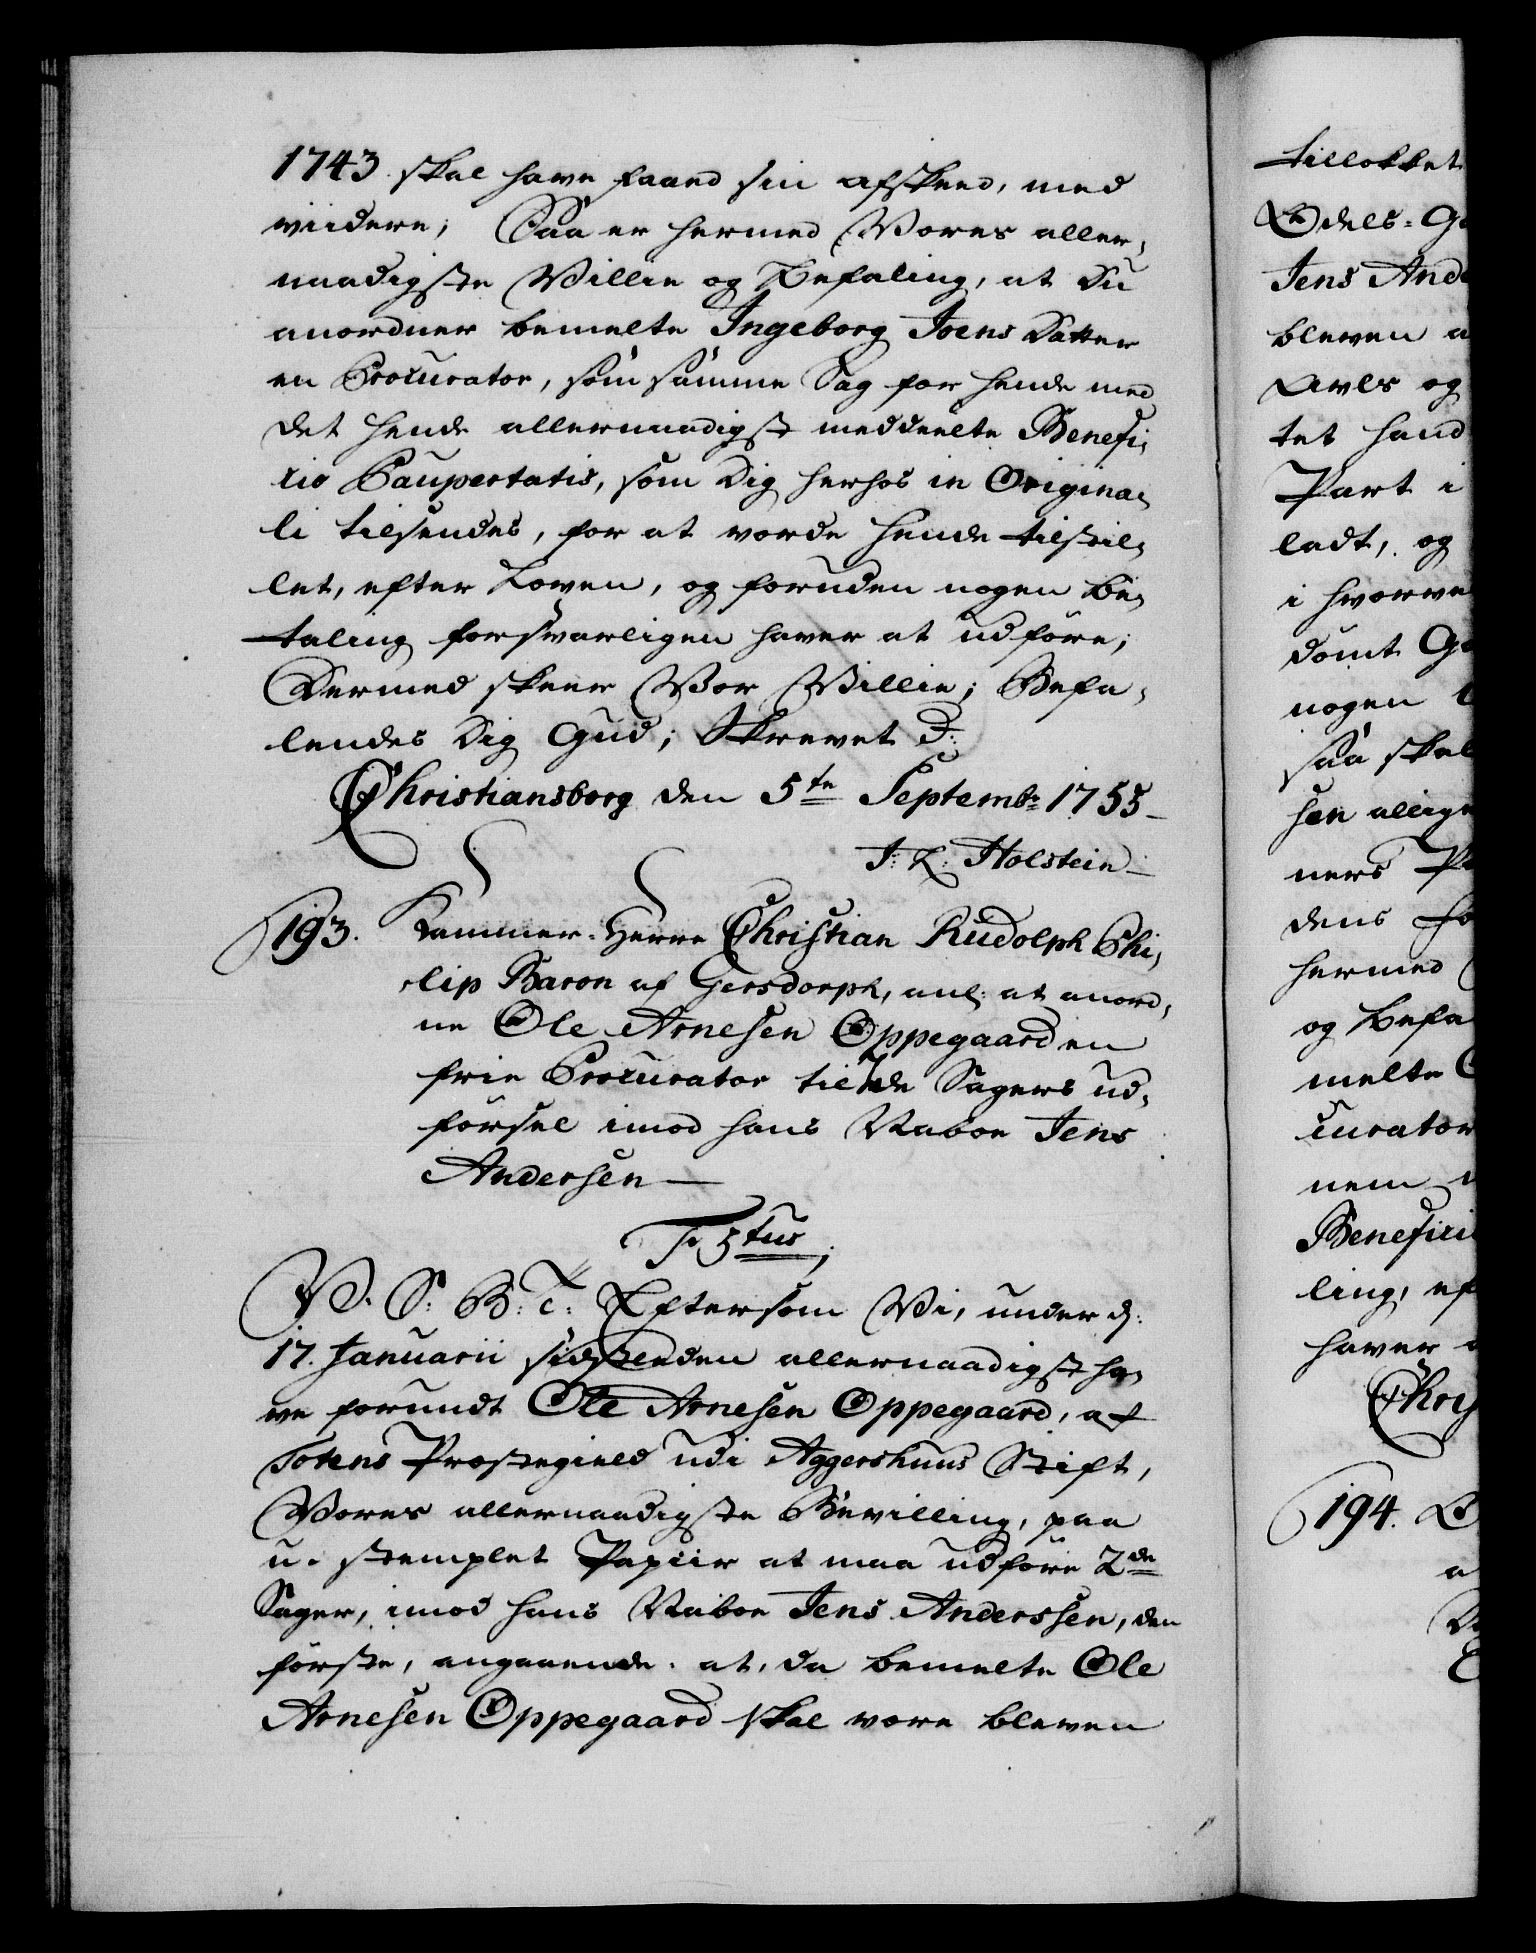 1743. skal have faaed sin afskeed, med
viidere; Saa er hermed Vores aller,
naadigste Villie og Befaling, at Du
anordner bemelte Ingeborg Joens Datter
en Procurator, som samme Sag for hende med
det hende allernaadigst meddeelte Benefi,
cio Paupertatis, som Dig herhos in Origina,
li tilsendes, for at vorde hende tilstil,
let, efter Loven, og foruden nogen Be,
taling forsvarligen haver at udføre;
Dermed skeer Vor Villie; Befa,
lendes Dig Gud; Skrevet P:
Christiansborg den 5te Septembr 1755_
J: L: Holstein_
193. Kammer-Herre Christian Rudolph Phi,
lip Baron af Gersdorph, anl: at anord,
ne Ole Arnesen Oppegaard en
frie Procurator til 2de Sagers ud,
førsel imod hans Naboe Jens
Andersen_
F 5tus;
V. S: G: T: Eftersom Vi, under d:
17. Januarii sidstleden allernaadigst ha,
ve forundt Ole Arnesen Oppegaard, af
Totens Præstegield udi Aggershuus Stift,
Vores allernaadigste Bevilling, paa
u-stemplet Papiir at maa udføre 2de
Sager, imod hans Naboe Jens Anderssen, den
første, angaaende. at, da bemelte Ole
Arnesen Oppegaard skal være bleven
tillokket
Odels-G
Jens And
bleven a
Avls og
tet hand
Part i
ladt, og
i hvorve
dømt G
nogen
saa skal
sen allige
ners P
dens fo
hermed
og Befa
melte
curator
nem
Benefici
ling, ef
haver
Chris
194.
a